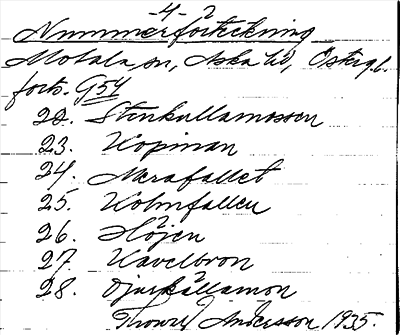 -4-
Nummerförteckning
Motala sn, Aska hd, Östergl.
forts. G 54
22. Stenkullamossen
23. Kopman
24. Merafallet
25. Holmfallen
26. Höjen
27. Kavelbron
28. Djurkällamon
Andersson 1935.